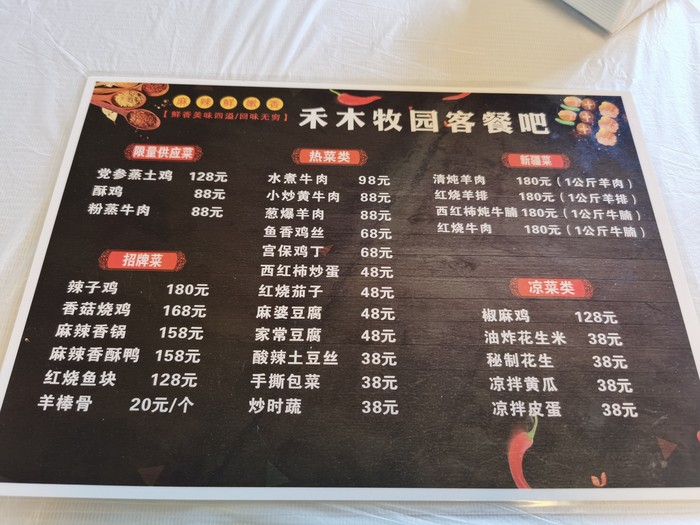 麻辣鲜嫩香
【鲜香美味四溢/回味无穷】
禾木牧园客餐吧
限量供应菜
党参蒸土鸡 128元
酥鸡 88元
粉蒸牛肉 88元
招牌菜
辣子鸡 180元
香菇烧鸡 168元
麻辣香锅 158元
麻辣香酥鸭 158元
红烧鱼块 128元
羊棒骨 20元/个
热菜类
水煮牛肉 98元
小炒黄牛肉 88元
葱爆羊肉 88元
鱼香鸡丝 68元
宫保鸡丁 68元
西红柿炒蛋 48元
红烧茄子 48元
麻婆豆腐 48元
家常豆腐 48元
酸辣土豆丝 38元
手撕包菜 38元
炒时蔬 38元
新疆菜
清炖羊肉 180元（1公斤羊肉）
红烧羊排 180元（1公斤羊排）
西红柿炖牛腩 180元（1公斤牛腩）
红烧牛肉 180元（1公斤牛腩）
凉菜类
椒麻鸡 128元
油炸花生米 38元
秘制花生 38元
凉拌黄瓜 38元
凉拌皮蛋 38元